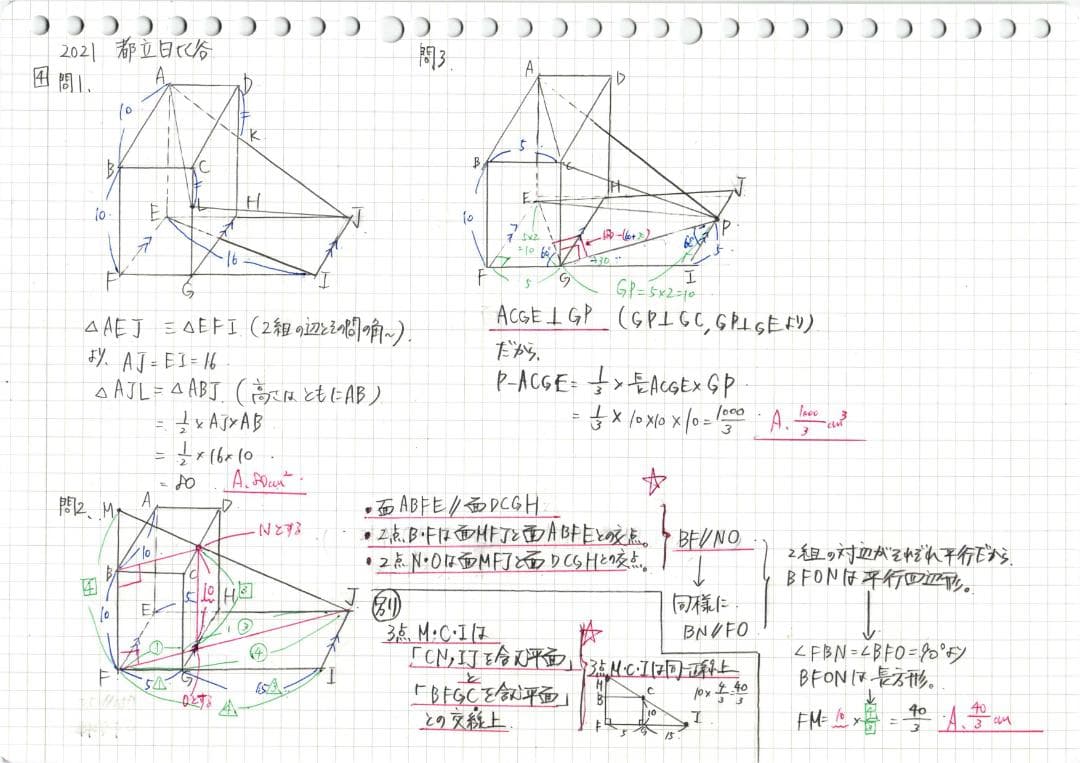 2021 都立日比谷
4 問1.
A
D
10
K
B
C
L
10
E
H
J
16
F
G
I
△AEJ ≡ △EFI (2組の辺とその間の角~).
より, AJ=EI=16
△AJL=△ABJ (高さはともにAB)
= 1/2 × AJ × AB
= 1/2 × 16 × 10
= 80 A. 80cm²
問2.
M
A
D
Nとする
10
B
C
4
10
5
10
3
E
H
J
1
3
4
F
5
G
15
I
1
3
4
Oとする
問3.
A
D
B
5
C
10
E
H
J
P
5×2
=10
60°
60°
5
F
5
G
I
GP=5×2=10
ACGE⊥GP (GP⊥GC, GP⊥GEより)
だから,
P-ACGE = 1/3 × 長ACGE × GP
= 1/3 × 10×10×10 = 1000/3 A. 1000/3 cm³
☆
・面ABFE//面DCGH
・2点B・Fは面MFJと面ABFEとの交点。
・2点N・Oは面MFJと面DCGHとの交点。
BF//NO
↓
同様に
BN//FO
2組の対辺がそれぞれ平行だから,
BFONは平行四辺形。
↓
∠FBN=∠BFO=90°より
BFONは長方形。
FM=10×4/3=40/3 A. 40/3 cm
別
3点M・C・Iは
「CN,IJを含む平面」
と
「BFGCを含む平面」
との交線上
☆
3点M・C・Iは同一直線上
10×4/3=40/3
M
B
C
10
I
F
5
G
15